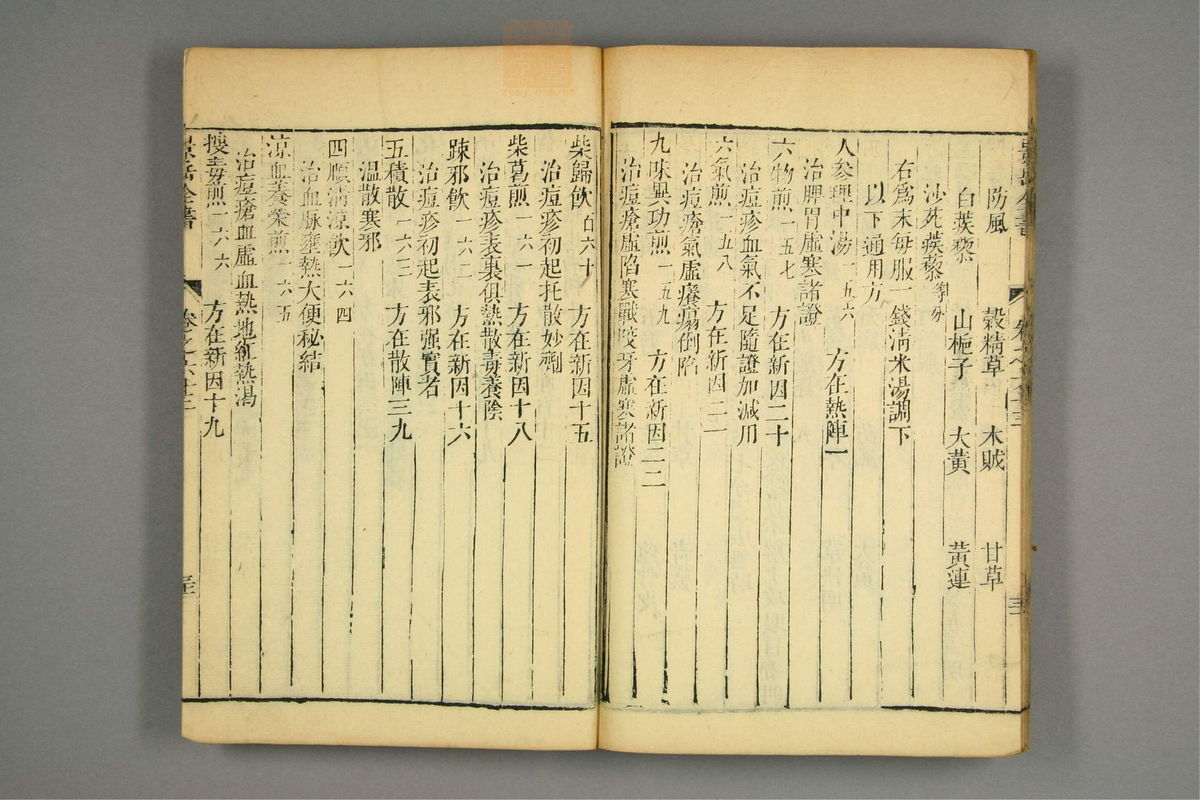 防風 穀精草 木賊 甘草
白蒺藜 山梔子 大黃 黃連
沙苑蒺藜 等分
右為末每服一錢清米湯調下
以下通用方
人參理中湯一五六 方在熱陣一
治脾胃虛寒諸證
六物煎一五七 方在新因二十
治痘疹血氣不足隨證加減用
六氣煎一五八 方在新因二一
治痘瘡氣虛癢塌倒陷
九味異功煎一五九 方在新因二二
治痘瘡虛陷寒戰咬牙虛寒諸證
柴歸飲百六十 方在新因十五
治痘疹初起托散妙劑
柴葛煎一六一 方在新因十八
治痘疹表裏俱熱散毒養陰
疎邪飲一六二 方在新因十六
治痘疹初起表邪强實者
五積散一六三 方在散陣三九
温散寒邪
四順清涼飲一六四
治血脉壅熱大便秘結
涼血養榮煎一六五
治痘瘡血虛血熱地紅熱渴
搜毒煎一六六 方在新因十九
景岳全書